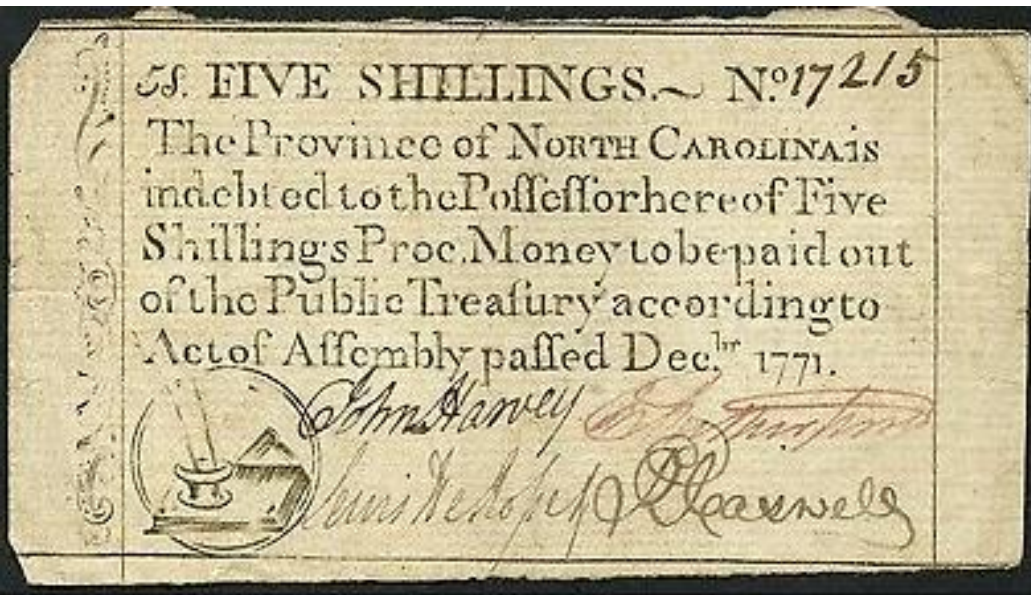 5s. FIVE SHILLINGS.~ No. 17215
The Province of NORTH CAROLINA is
indebted to the Poſſeſſor here of Five
Shillings Proc. Money to be paid out
of the Public Treaſury according to
Act of Aſſembly paſſed Decbr. 1771.
John Harvey
Lewis De Roſſet R Caswell